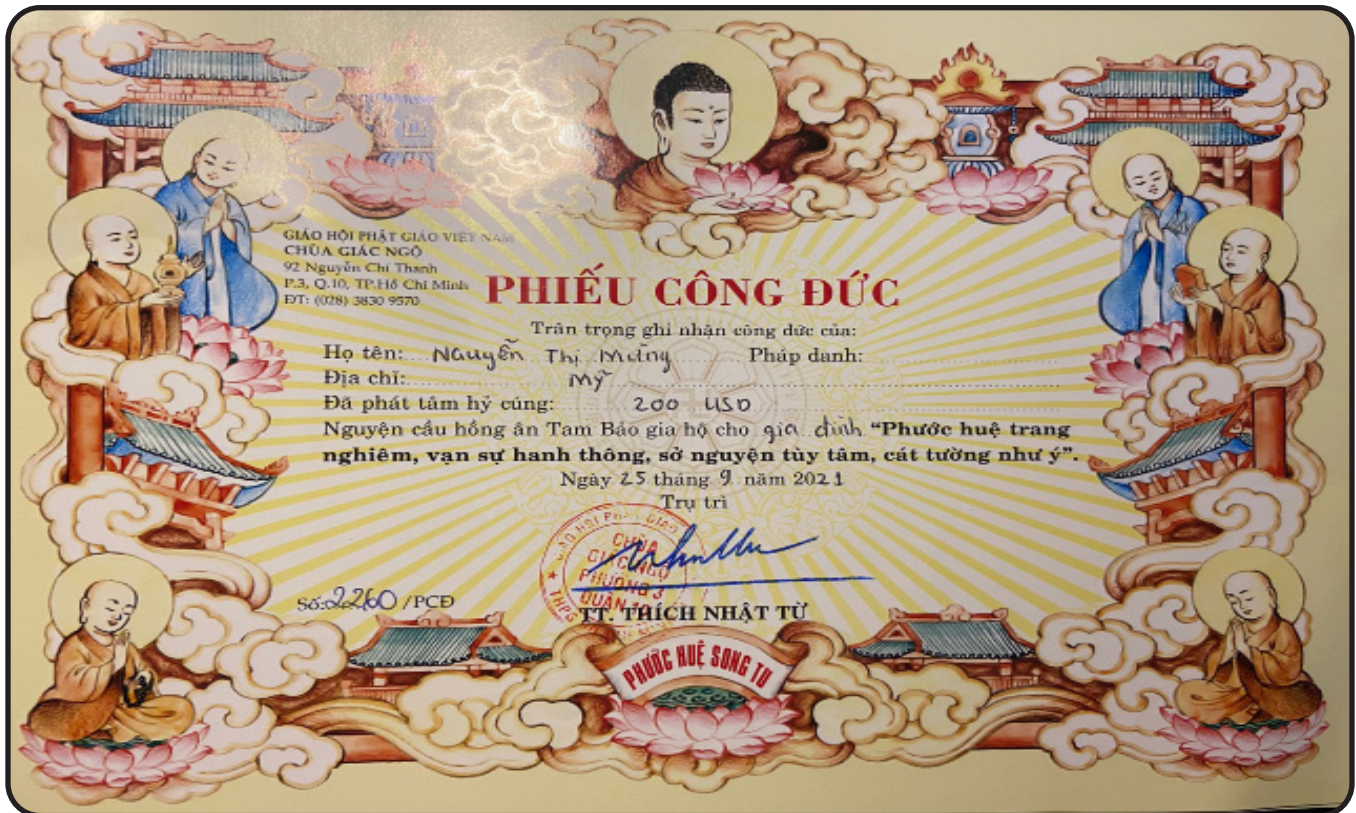 GIÁO HỘI PHẬT GIÁO VIỆT NAM
CHÙA GIÁC NGỘ
92 Nguyễn Chí Thanh
P.3, Q.10, TP.Hồ Chí Minh
ĐT: (028) 3830 9570
PHIẾU CÔNG ĐỨC
Trân trọng ghi nhận công đức của:
Họ tên: Nguyễn Thị Mừng Pháp danh:
Địa chỉ: Mỹ
Đã phát tâm hỷ cúng: 200 USD
Nguyện cầu hồng ân Tam Bảo gia hộ cho gia đình "Phước huệ trang
nghiêm, vạn sự hanh thông, sở nguyện tùy tâm, cát tường như ý".
Ngày 25 tháng 9 năm 2021
Trụ trì
CHÙA
GIÁC NGỘ
PHƯỜNG 3
QUẬN 10
Số: 2260 /PCĐ
TT. THÍCH NHẬT TỪ
PHƯỚC HUỆ SONG TU